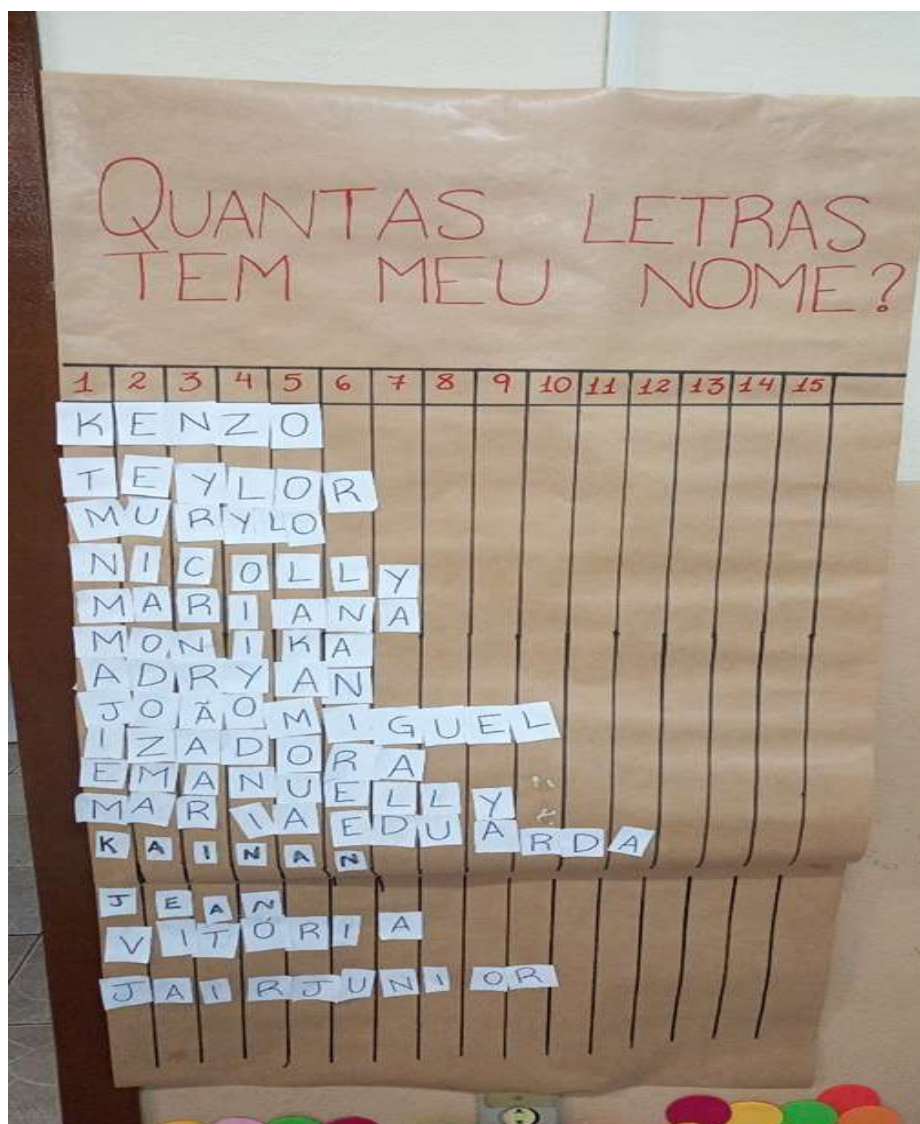 QUANTAS LETRAS
TEM MEU NOME?
1 2 3 4 5 6 7 8 9 10 11 12 13 14 15
KENZO
TEYLOR
MURYLO
NICOLLY
MARIANA
MONIKA
ADRYAN
JOÃO MIGUEL
IZADORA
EMANUELLY
MARIA EDUARDA
KAINAN
JEAN
VITÓRIA
JAIRJUNIOR